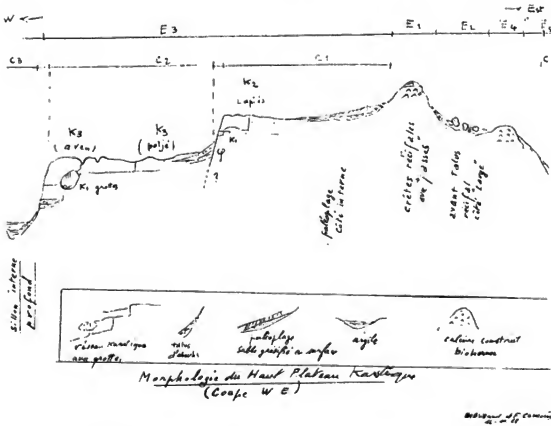 W
Est
E3
E1
E2
E4
C3
C2
C1
C
K3
(aven)
K3
(poljé)
K2
Lapiés
K1
K1 grottes
φ
?
paléoplage
côté interne
crêtes récifales
avant talus
récifal
côté large
sillon interne
profond
réseau karstique
avec grottes
talus
d'éboulis
paléoplage
sable grésifié en surface
argile
calcaire construit
bioherme
Morphologie du Haut Plateau Karstique
(Coupe W E)